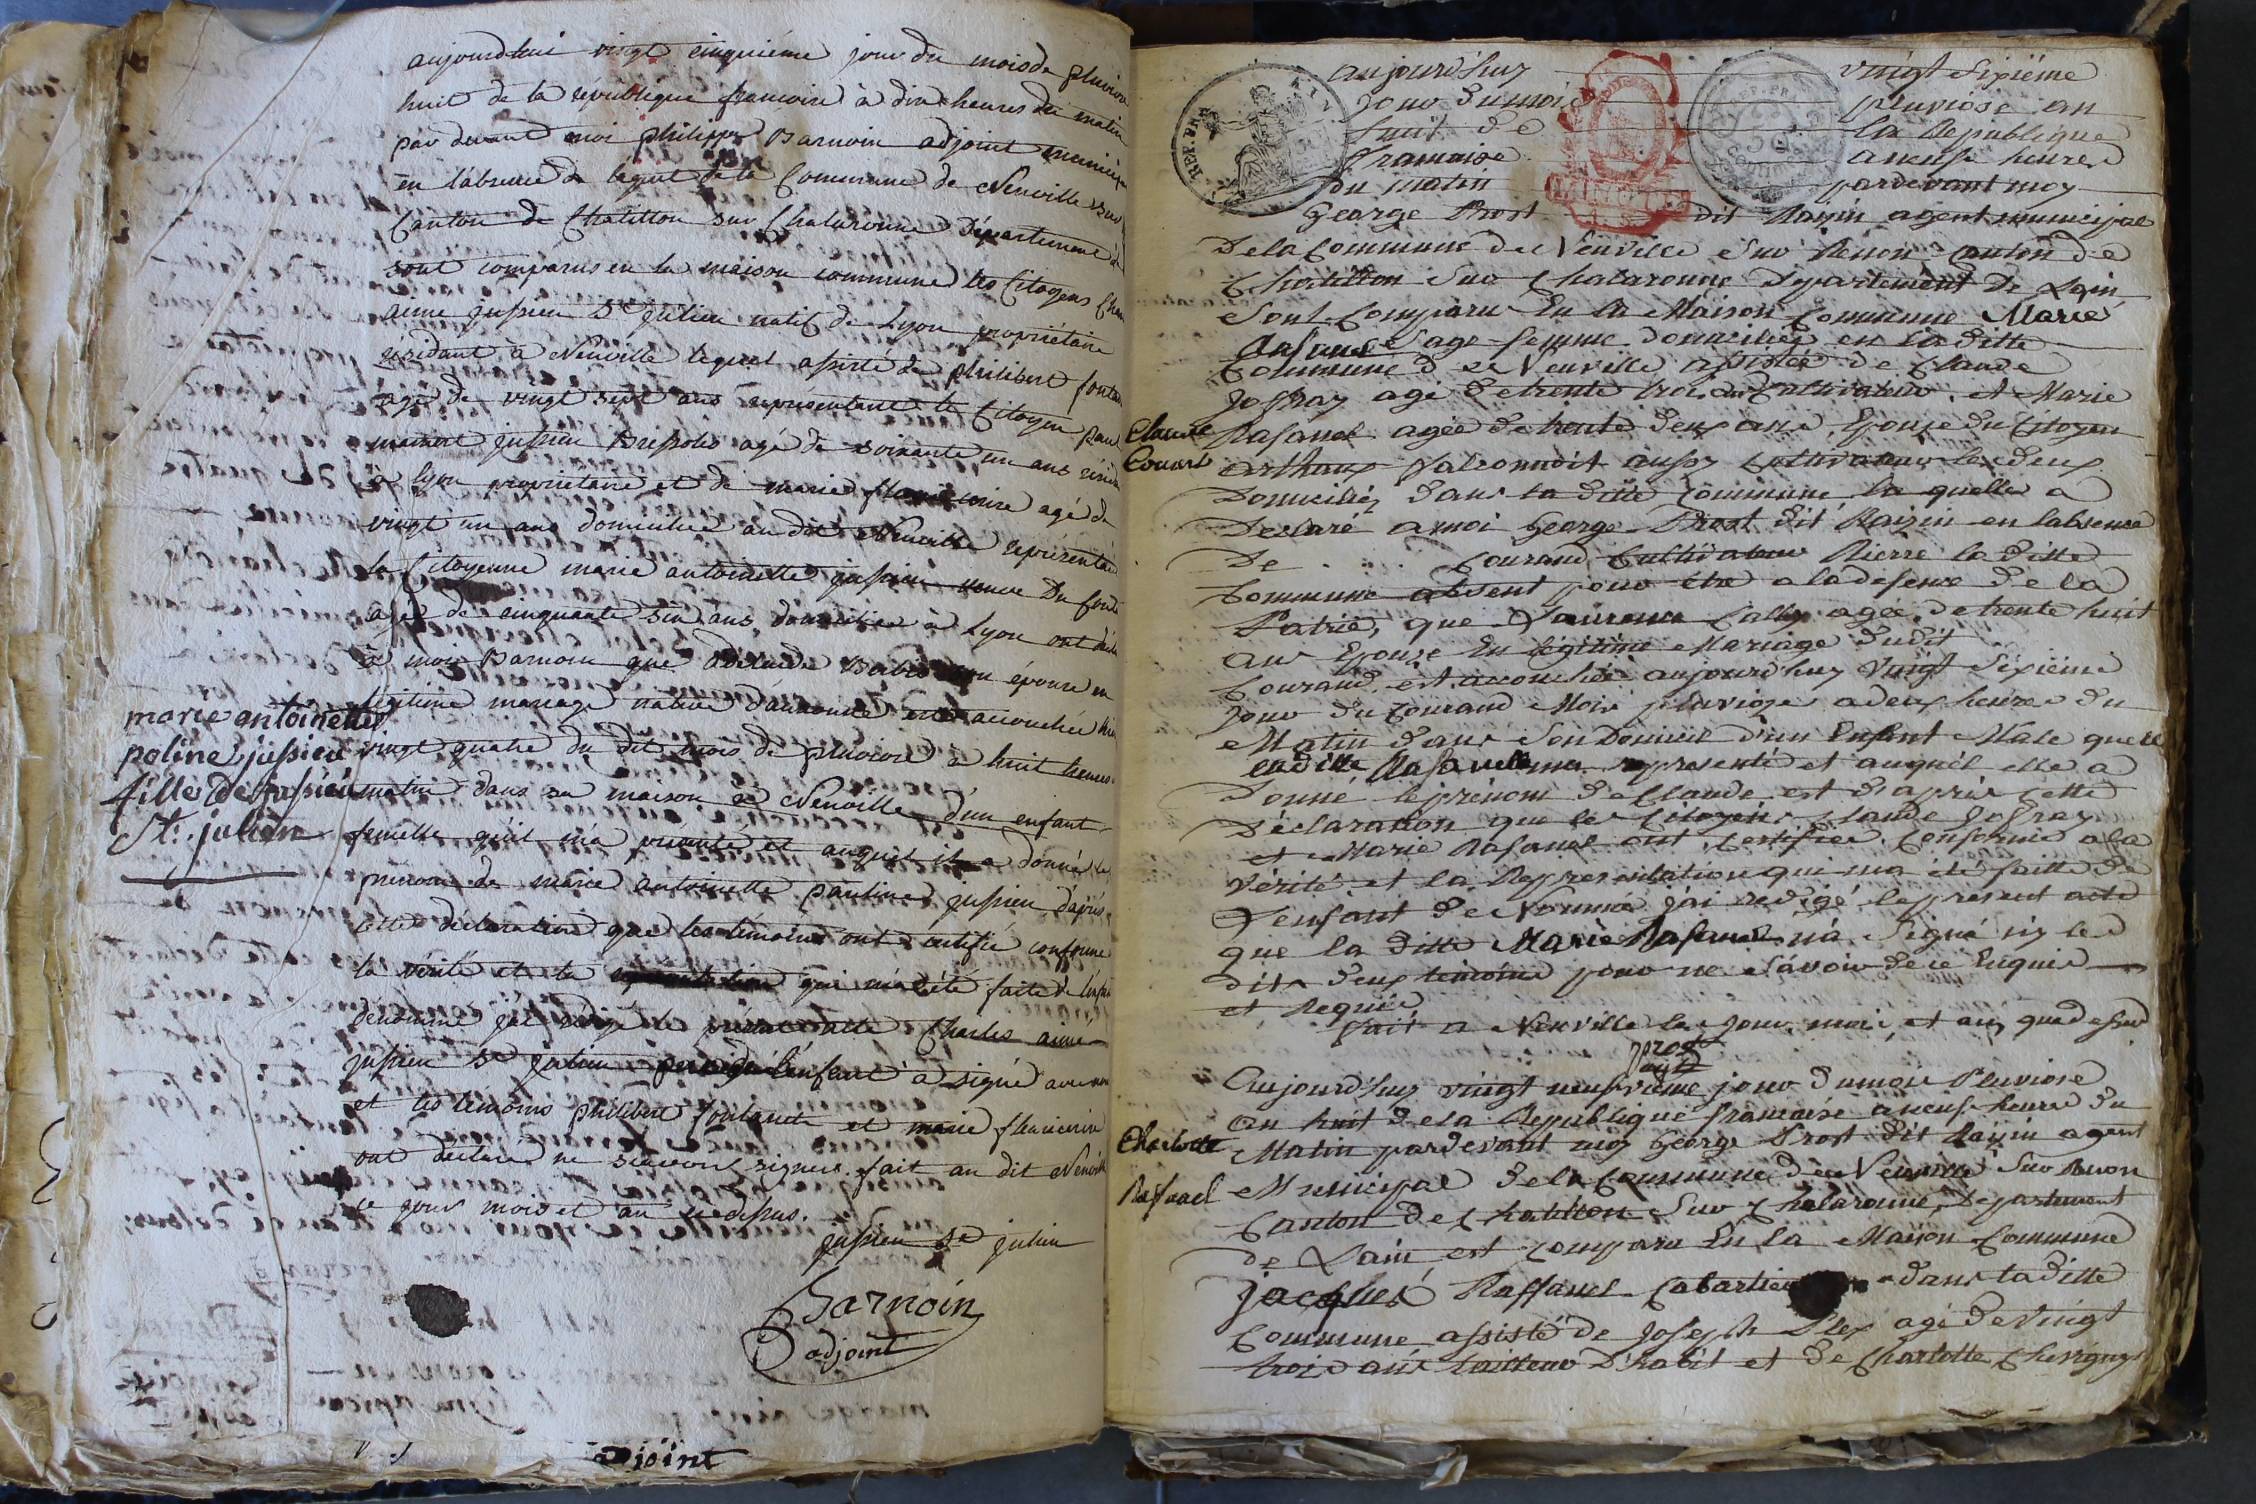 aujourdhui vingt cinquiéme jour du mois de pluvios
huit de la république francoise à dix heures du matin
par devant moi philippe Barnoin adjoint municip
en l'absence de l'agent de la Commune de Neuville sur
Canton de Chatillon sur Chalaronne Département de
sont comparus en la maison commune les Citoyens Char
aimé jussieu St julien natif de Lyon propriétaire
résidant à Neuville lequel assisté de philibert fontan
agé de vingt sept ans représentant le Citoyen paul
jussieu agé de soixante un ans résida
à lyon propriétaire et de marie agé de
vingt un ans domiciliée au dit Neuville représentan
la Citoyenne marie antoinette jussieu
agé de cinquante six ans domiciliée à Lyon ont décla
à moi Barnoin que adelaide épouse en
légitime mariage native est accouchée hie
vingt quatre du dit mois de pluviose à huit heures
matin dans sa maison de Neuville d'un enfant
femelle qu'il m'a présenté et auquel il a donné le
prénom de marie antoinette pauline jussieu d'après
cette déclaration que les témoins ont certifié conforme
la vérité et la représentation qui m'a été faite de l'enfan
denommé j'ai redigé le présent acte Charles aimé
jussieu St julien père de l'enfant a signé avec moi
et les témoins philibert fontanet et marie
ont déclaré ne scavoir signer. fait au dit Neuville
ce jour mois et an ci dessus.
jussieu St julien
Barnoin
adjoint
marie antoinette
poline jussieu
fille de jussieu
St. julien
adjoint
REP. FRA
aujourd'huy vingt sixiéme
jour du mois pluviose an
huit de la Republique
francaise a neuf heures
du matin pardevant moy
George Prost dit Raizin agent municipal
De la Commune de Neuville Sur Renon Canton de
Chatillon Sur Chalaronne Departement de Lain
Sont Comparu En la Maison Commune Marie
Rafanel Sage femme domiciliée en la ditte
Commune de Neuville assistée de Claude
Jofray agé de trente trois ans Cultivateur et Marie
Rafanel agée de trente deux ans, Epouze du Citoyen
aussy Cultivateur les deux
Domiciliéz dans la ditte Commune la quelle a
Declaré a moi George Prost dit Raizin en labsence
De . . . Courand Cultivateur Rierre la ditte
Commune absent pour etre a la defense de la
Patrie, que agée de trente huit
ans Epouze En légitime Mariage dudit
Courand, est accouchée aujourd'huy vingt Sixiéme
jour du Courand Mois pluvioze a deux heures du
Matin dans Son Domicil d'un Enfant Male que
la ditte Rafanel ma représenté et auquel elle a
Donné le prénom de Claude et d'après cette
Déclaration que les Citoyens Claude Jofray
et Marie Rafanel ont Certifiée Conforme a la
Vérité et la Representation qui ma été faitte de
L'enfant de Nommé jai redigé le present acte
que la ditte Marie Rafanel na Signé ny les
dits deux temoins pour ne Savoir de ce Enquis
et Requis
fait a Neuville les jour, mois, et an, que dessus
prost
agt
Aujourd'huy vingt neufvieme jour du mois Pluviose
an huit de la Republique francaise a neuf heures du
Matin pardevant moy George Prost dit Raizin agent
Municipal De la Commune de Neuville Sur Renon
Canton de Chatillon Sur Chalaronne, Departement
de Lain est comparu En la Maison Commune
jacques Raffanel Cabartier dans la ditte
Commune assisté de Joseph agé de Vingt
trois ans tailleur D'habit et de Charlotte Chevigny
Claude
Couart
Charlotte
Rafanel